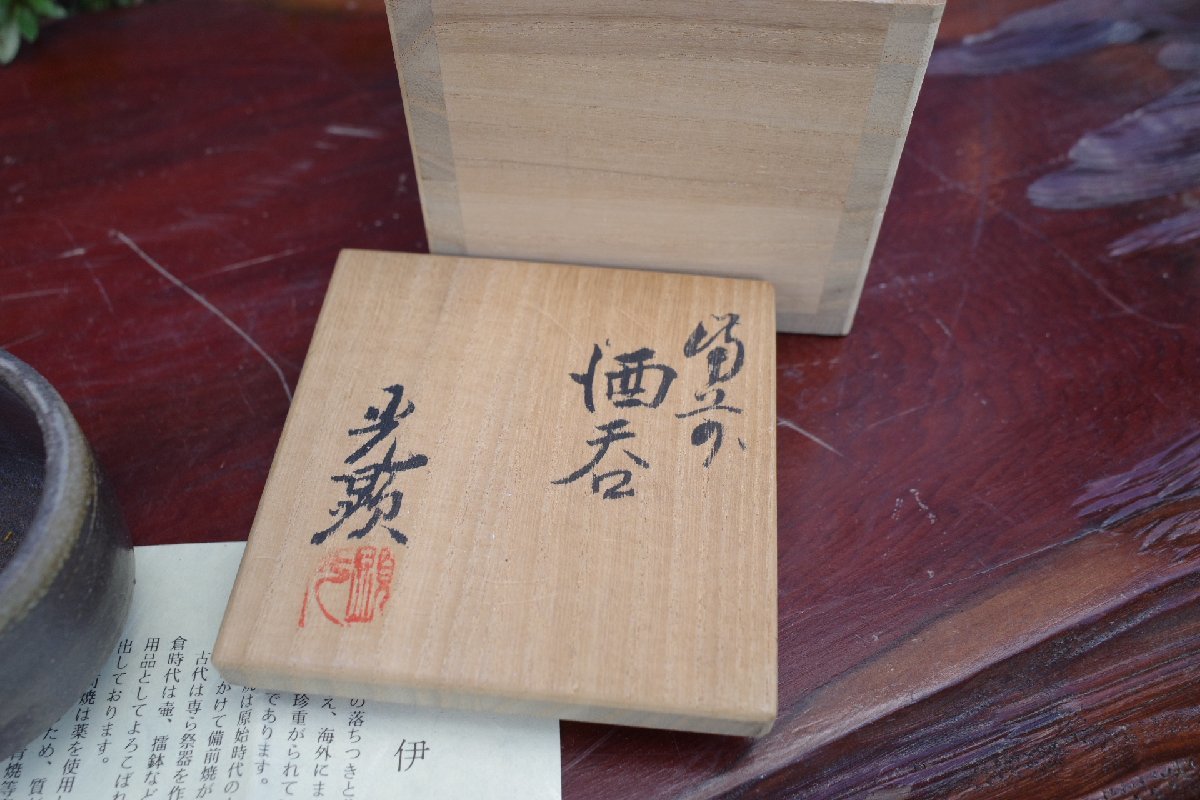 備前
酒呑
光顕
伊
の落ちつきと
え、海外にま
珍重がられて
であります。
は原始時代の
かけて備前焼が
古代は専ら祭器を作
倉時代は壷、擂鉢など
用品としてよろこばれ
出しております。
焼は薬を使用
ため、質